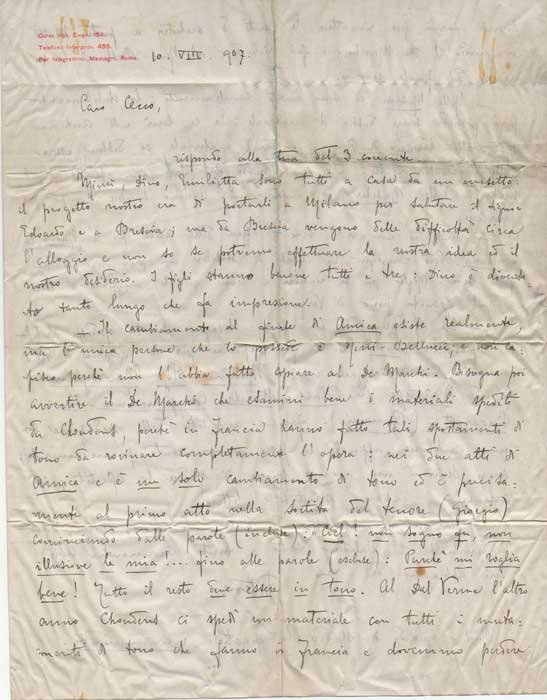 Corso Vitt. Eman. 154.
Telefono Interprov. 488.
Per telegrammi, Mascagni, Roma.
10. VIII. 907.
Caro Cecco,
rispondo alla tua del 3 corrente.
Mimì, Dino, Emilietta sono tutti a casa da un mesetto:
il progetto nostro era di portarli a Milano per salutare il Signor
Edoardo e a Brescia; ma da Brescia vengono delle difficoltà circa
l'alloggio e non so se potremo effettuare la nostra idea ed il
nostro desiderio. I figli stanno benone tutti e tre: Dino è diventa-
to tanto lungo che fa impressione.
— Il cambiamento al finale di Amica esiste realmente,
ma l'unica persona che lo possiede è Mimì-Bellucci, e non ca-
pisco perchè non l'abbia fatto copiare al De Marchi. Bisogna poi
avvertire il De Marchi che esamini bene i materiali spediti
da Choudens, perchè in Francia hanno fatto tali spostamenti di
tono da rovinare completamente l'opera: nei due atti di
Amica c'è un solo cambiamento di tono ed è precisa-
mente al primo atto nella sortita del tenore (Giorgio)
cominciando dalle parole (incluse): Ciel! non sogno fu, non
illusione la mia!.... fino alle parole (escluse): Purchè mi voglia
bene! Tutto il resto deve essere in tono. Al Dal Verme l'altro
anno Choudens ci spedì un materiale con tutti i muta-
menti di tono che fanno in Francia e dovemmo perdere